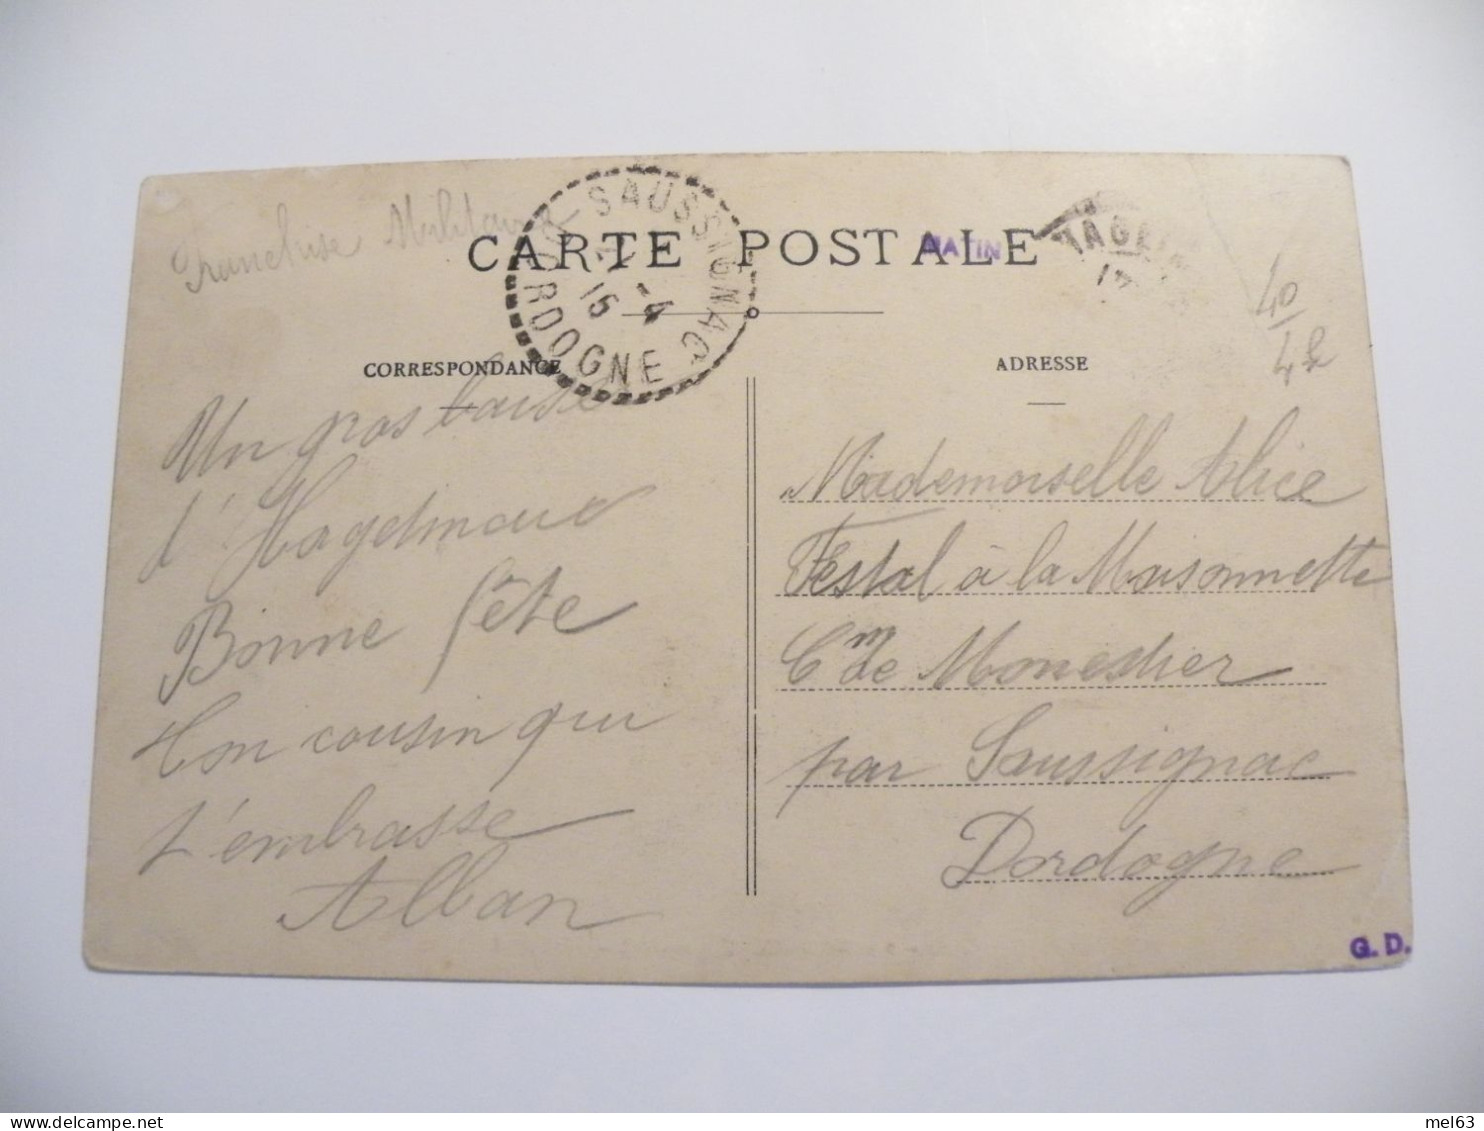 Franchise Militaire
CARTE POSTALE
MATIN
SAUSSIGNAC
-4
15
DORDOGNE
HAGE
17
40
42
CORRESPONDANCE
ADRESSE
Un gros baiser
d'Hagetmau
Bonne fête
Ton cousin qui
t'embrasse
Alban
Mademoiselle Alice
Festal à la Maisonnette
Cm de Monestier
par Saussignac
Dordogne
G. D.
mel63